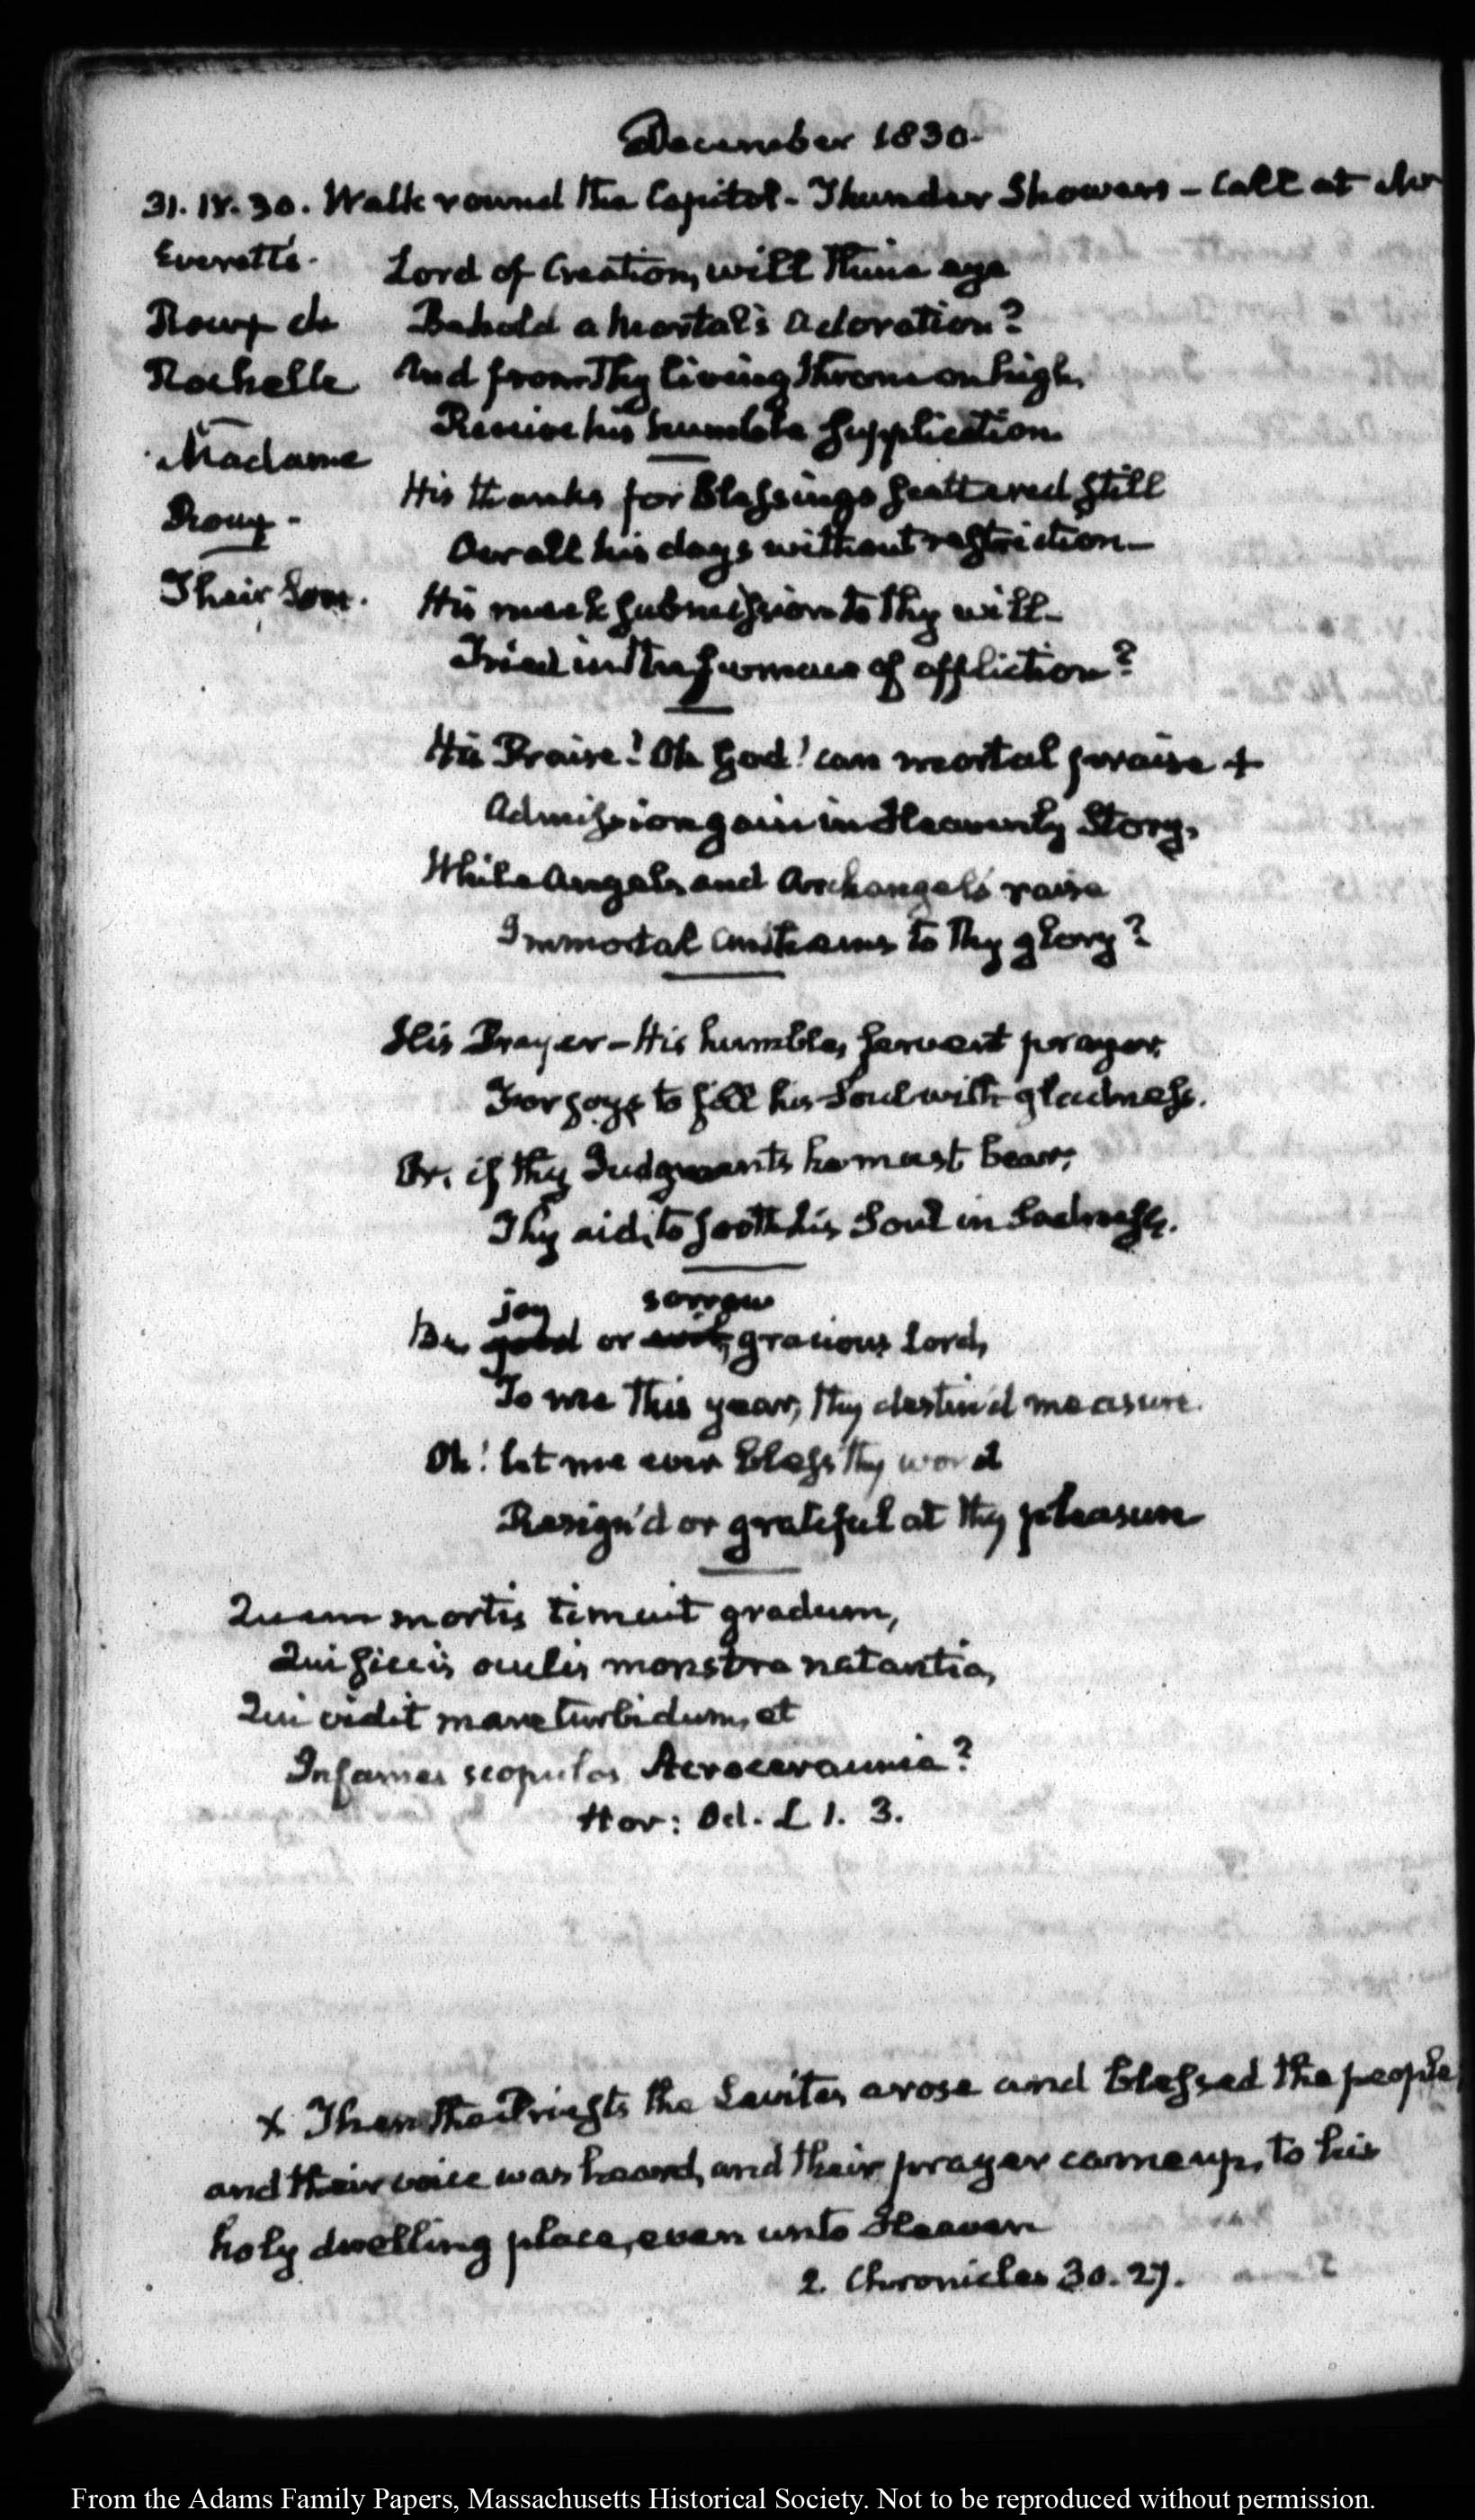 December 1830.
31. IV. 30. Walk round the Capitol - Thunder Showers - Call at Mr
Everett's.
Lord of Creation, will thine eye
Roux de
Behold a mortal's adoration?
Rochelle
And from Thy living throne on high,
Receive his humble supplication
Madame
His thanks for Blessings scattered still
Roux -
Our all his days without restriction -
Their Son.
His meek submission to thy will -
Tried in the furnace of affliction?
His Praise! Oh God! can mortal praise +
Admission gain in Heavenly Story,
While Angels, and Archangels raise
Immortal anthems to Thy glory?
His Prayer - His humble, fervent prayer,
For joys to fill his Soul with gladness.
Or, if thy Judgments he must bear,
Thy aid, to sooth his Soul in Sadness.
joy sorrow
Be good or evil, gracious Lord,
To me this year, thy destin'd measure.
Oh! let me ever bless thy word
Resign'd or grateful at thy pleasure
Quem mortis timuit gradum,
Qui siccis oculis monstra natantia,
Qui vidit mare turbidum, et
Infames scopulos Acroceraunia?
Hor: Od. L 1. 3.
+ Then the Priests the Levites arose and blessed the people,
and their voice was heard, and their prayer came up, to his
holy dwelling place, even unto Heaven
2. Chronicles 30. 27.
From the Adams Family Papers, Massachusetts Historical Society. Not to be reproduced without permission.